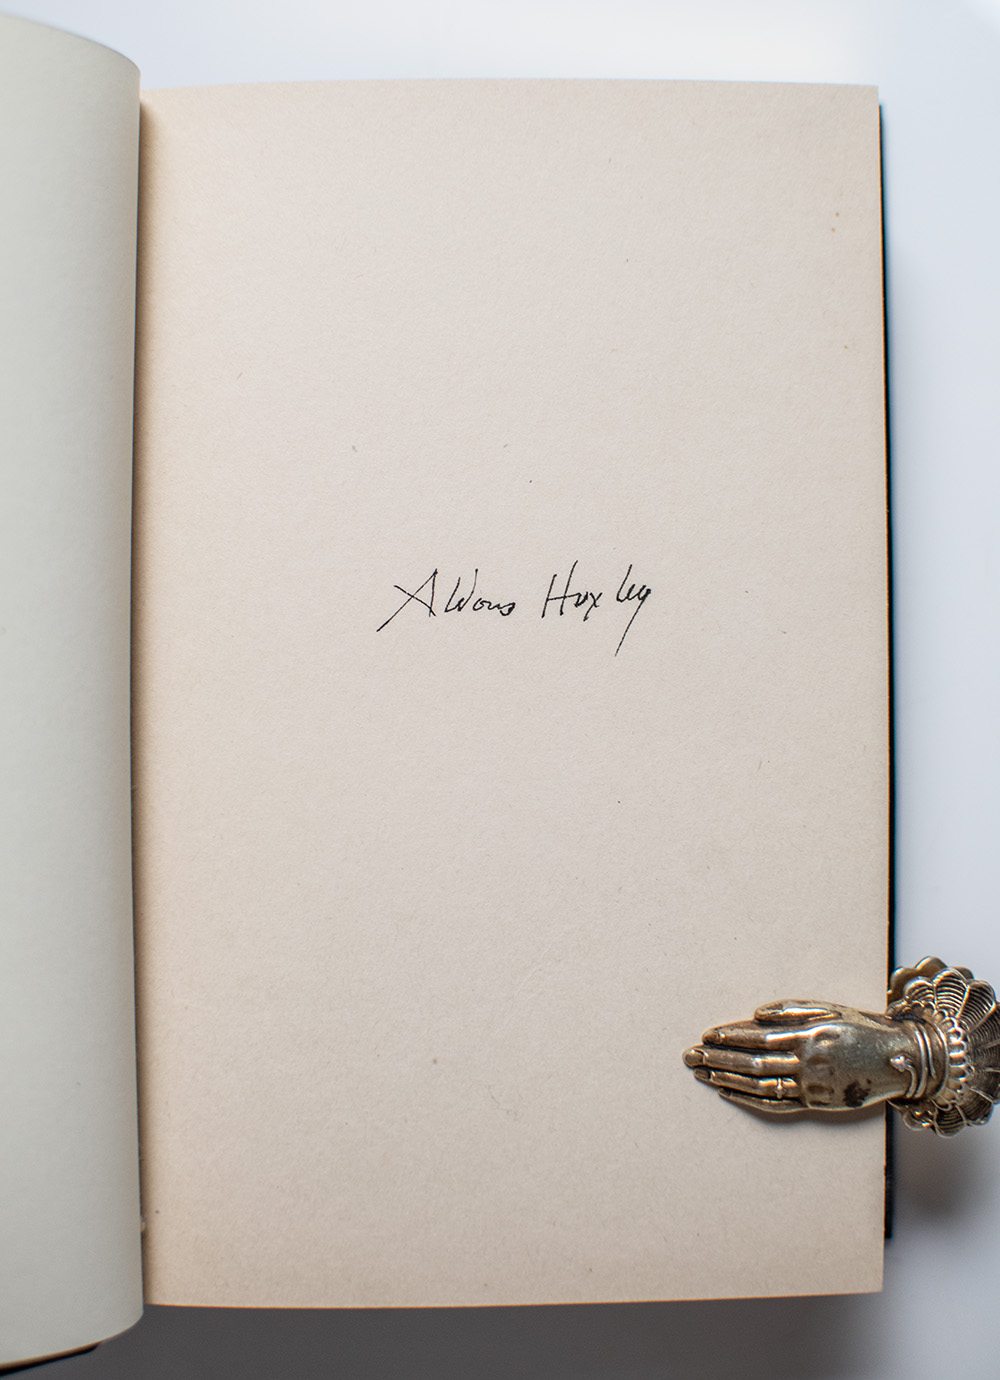 Aldous Huxley